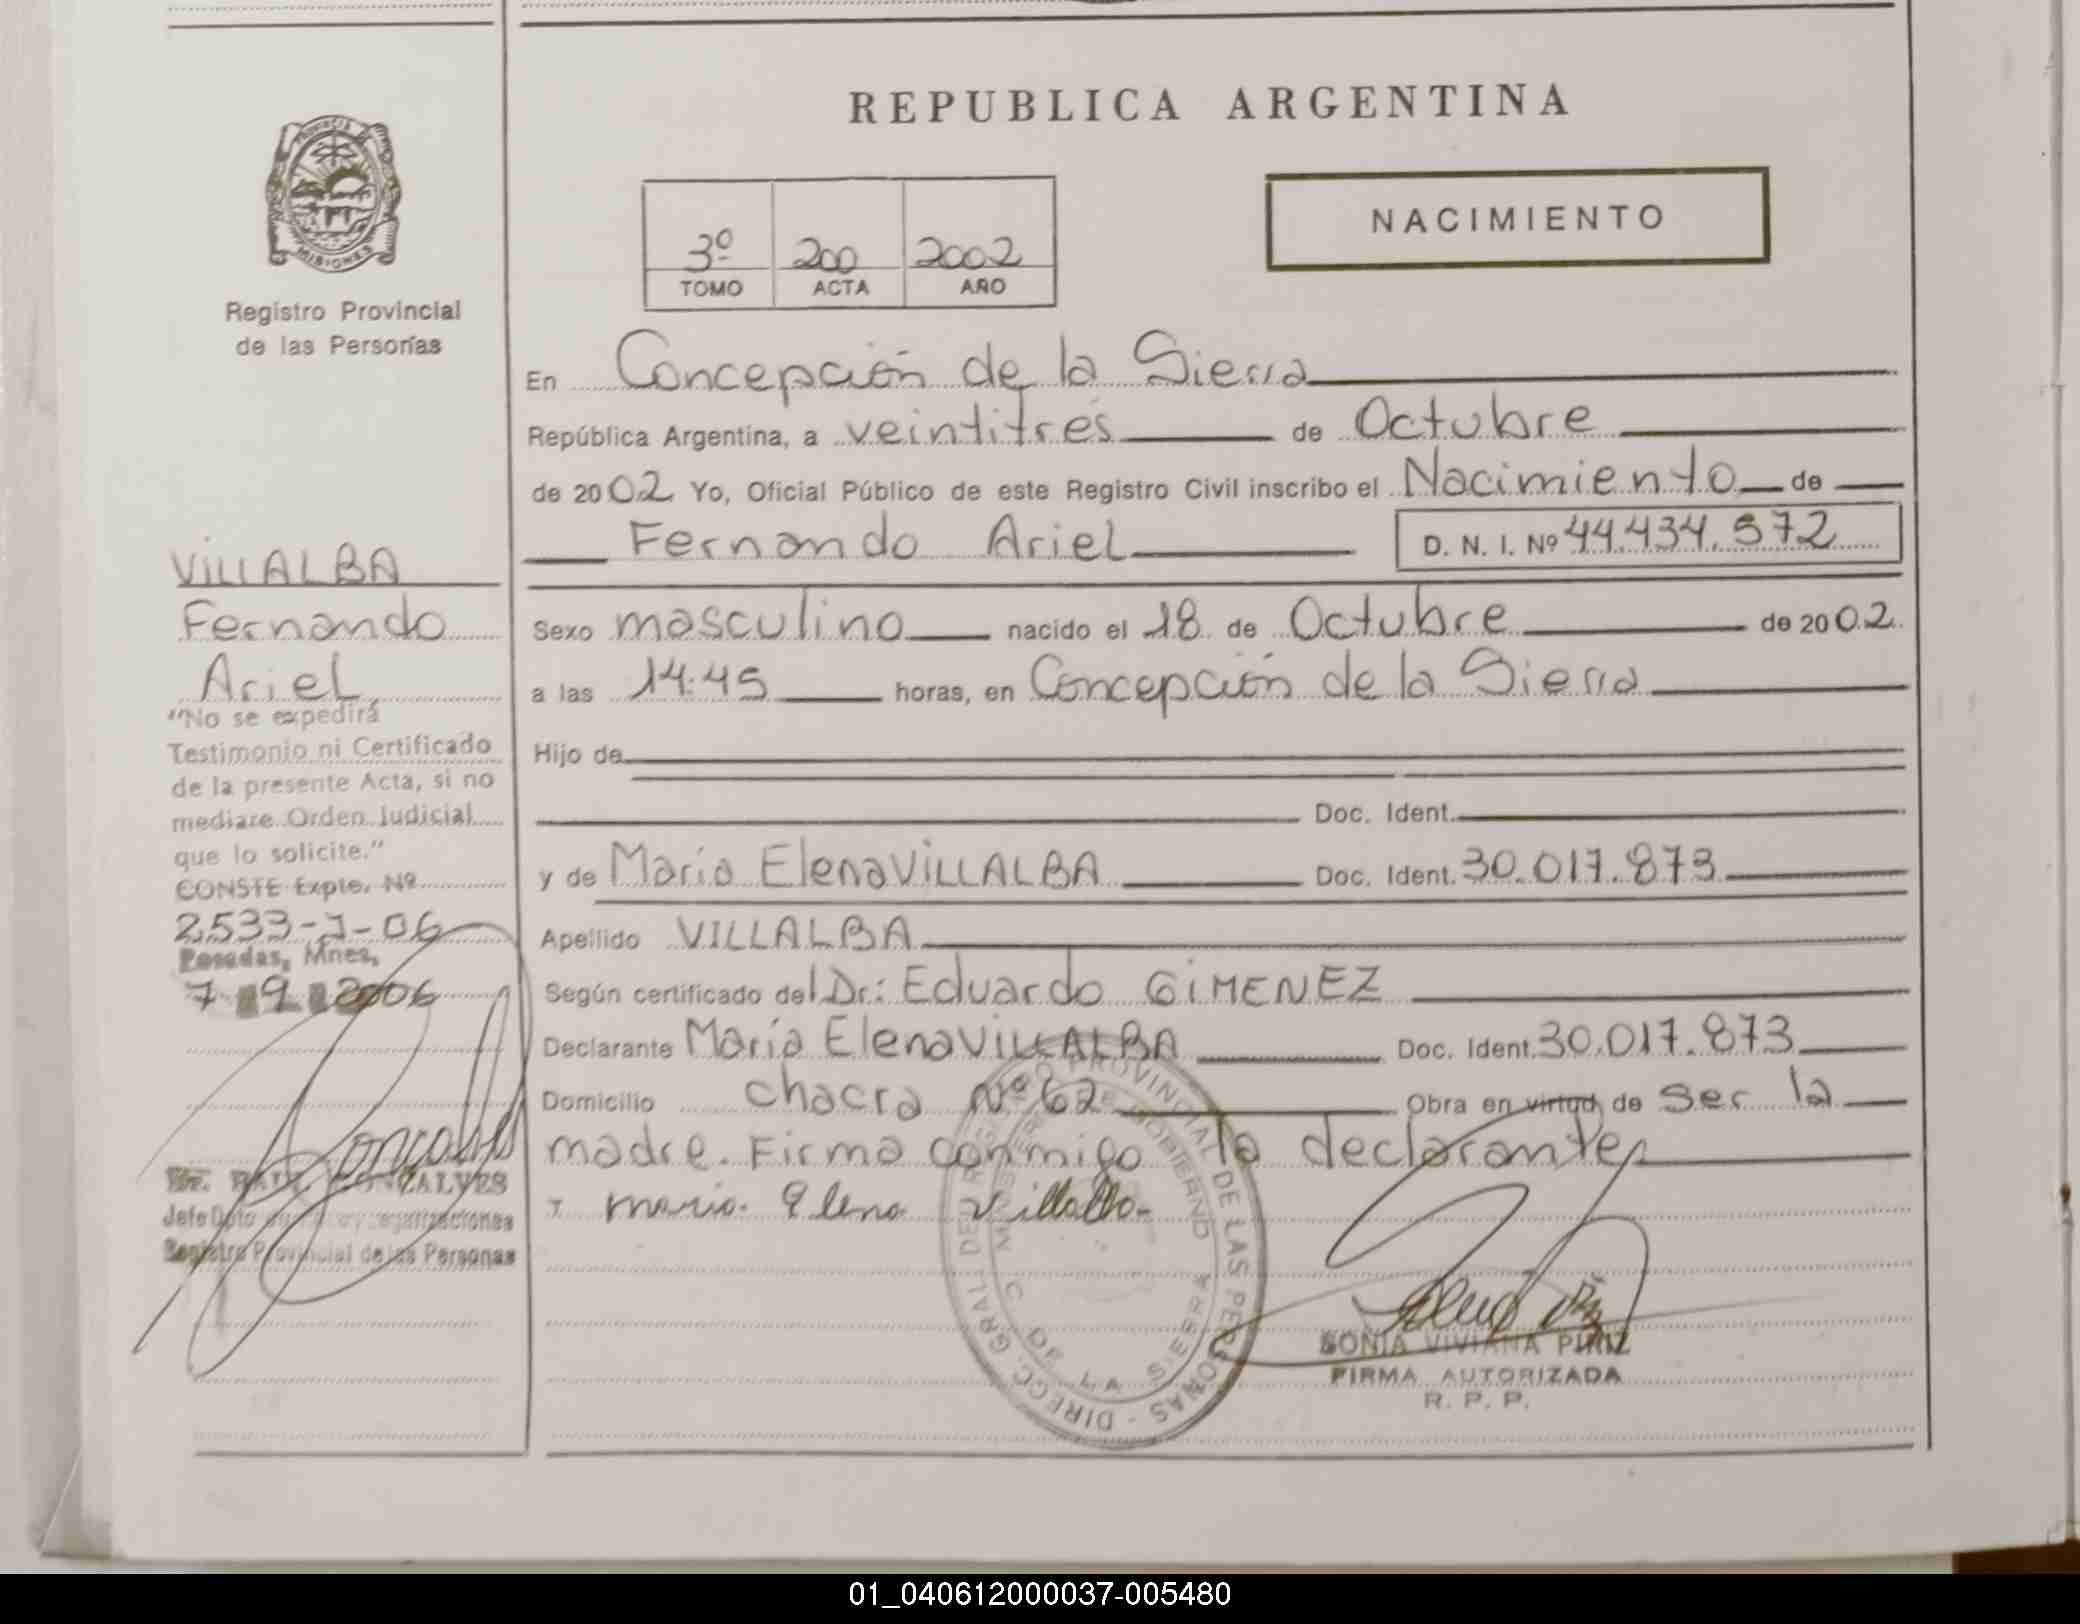 REPUBLICA ARGENTINA
PROVINCIA
MISIONES
Registro Provincial
de las Personas
3º 200 2002
TOMO ACTA AÑO
NACIMIENTO
En Concepción de la Sierra
República Argentina, a veintitrés de Octubre
de 2002 Yo, Oficial Público de este Registro Civil inscribo el Nacimiento de
Fernando Ariel D. N. I. Nº 44.434.572
Sexo masculino nacido el 18 de Octubre de 2002
a las 14.45 horas, en Concepción de la Sierra
Hijo de
Doc. Ident.
y de María Elena VILLALBA Doc. Ident. 30.017.873
Apellido VILLALBA
Según certificado del Dr: Eduardo GIMENEZ
Declarante María Elena VILLALBA Doc. Ident. 30.017.873
Domicilio chacra Nº 62 Obra en virtud de ser la
madre. Firma conmigo la declarante
maria Elena Villalba
VILLALBA
Fernando
Ariel
"No se expedirá
Testimonio ni Certificado
de la presente Acta, si no
mediare Orden Judicial
que lo solicite."
CONSTE Expte. Nº
2533-J-06
Posadas, Mnes,
7 9 2006
Dr. RAUL GONCALVES
Jefe Dpto
Registro Provincial de las Personas
DIRECC. GRAL. DEL REGISTRO PROVINCIAL DE LAS PERSONAS
C. DE LA SIERRA
SONIA VIVIANA PIRIZ
FIRMA AUTORIZADA
R. P. P.
01_040612000037-005480